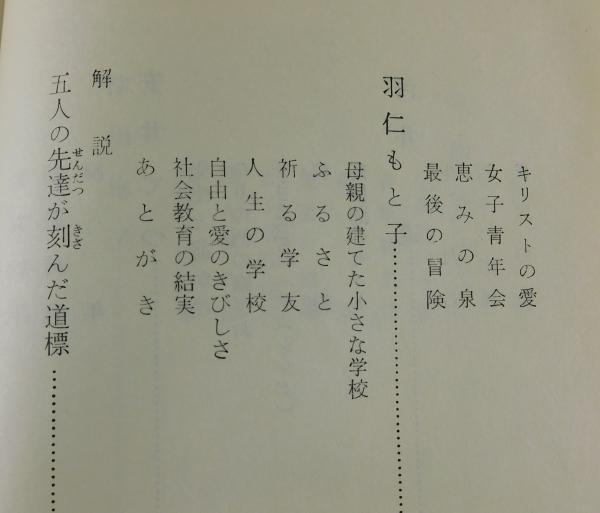 キリストの愛
女子青年会
恵みの泉
最後の冒険
羽仁もと子……………………
母親の建てた小さな学校
ふるさと
祈る学友
人生の学校
自由と愛のきびしさ
社会教育の結実
あとがき
解説
五人の先達が刻んだ道標……………
せんだつ
きざ